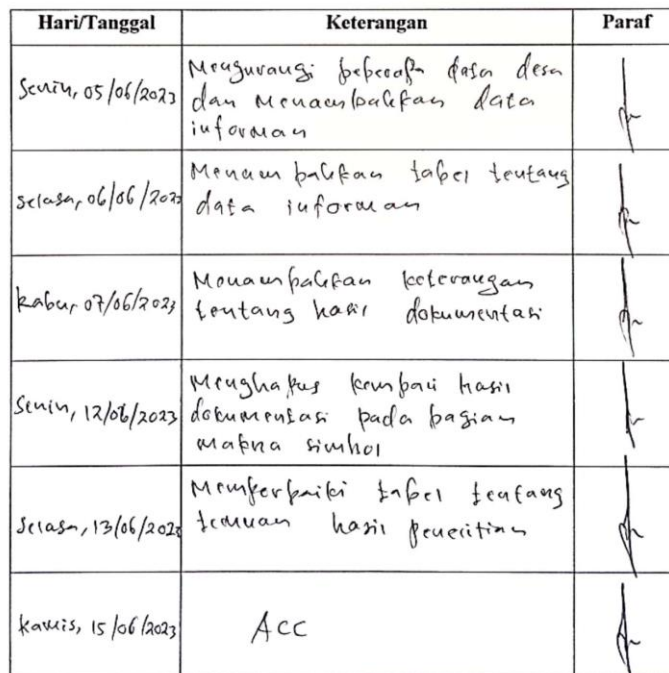 Hari/Tanggal Keterangan Paraf
Senin, 05/06/2023
Mengurangi beberapa data desa
dan Menambahkan data
informan
Selasa, 06/06/2023
Menambahkan tabel tentang
data informan
Rabu, 07/06/2023
Menambahkan keterangan
tentang hasil dokumentasi
Senin, 12/06/2023
Menghapus kembali hasil
dokumentasi pada bagian
makna simbol
Selasa, 13/06/2023
Memperbaiki tabel tentang
temuan hasil penelitian
Kamis, 15/06/2023
ACC